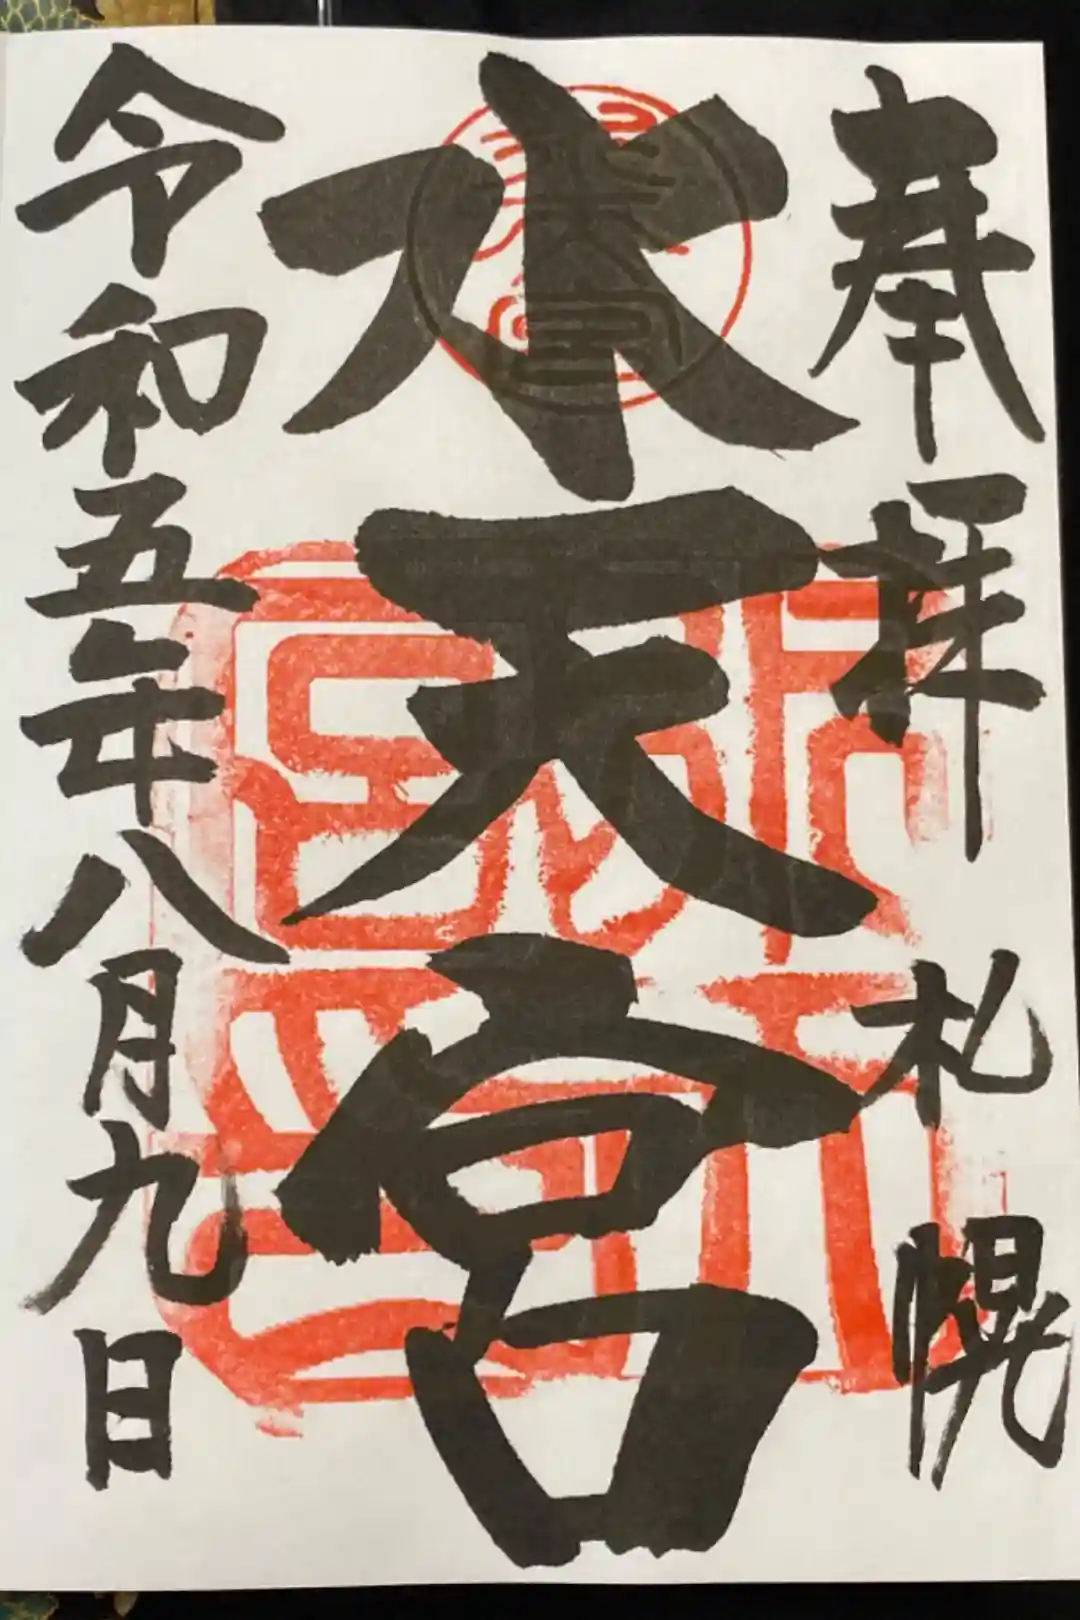 奉拝 札幌
水天宮
令和五年八月九日